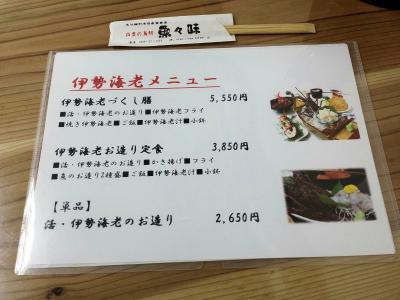 魚々味
伊勢海老メニュー
伊勢海老づくし膳 5,550円
■活・伊勢海老のお造り■伊勢海老フライ
■焼き伊勢海老■ご飯■伊勢海老汁■小鉢
伊勢海老お造り定食 3,850円
■活・伊勢海老のお造り■かき揚げ■フライ
■魚のお造り2種盛■ご飯■伊勢海老汁■小鉢
【単品】
活・伊勢海老のお造り 2,650円